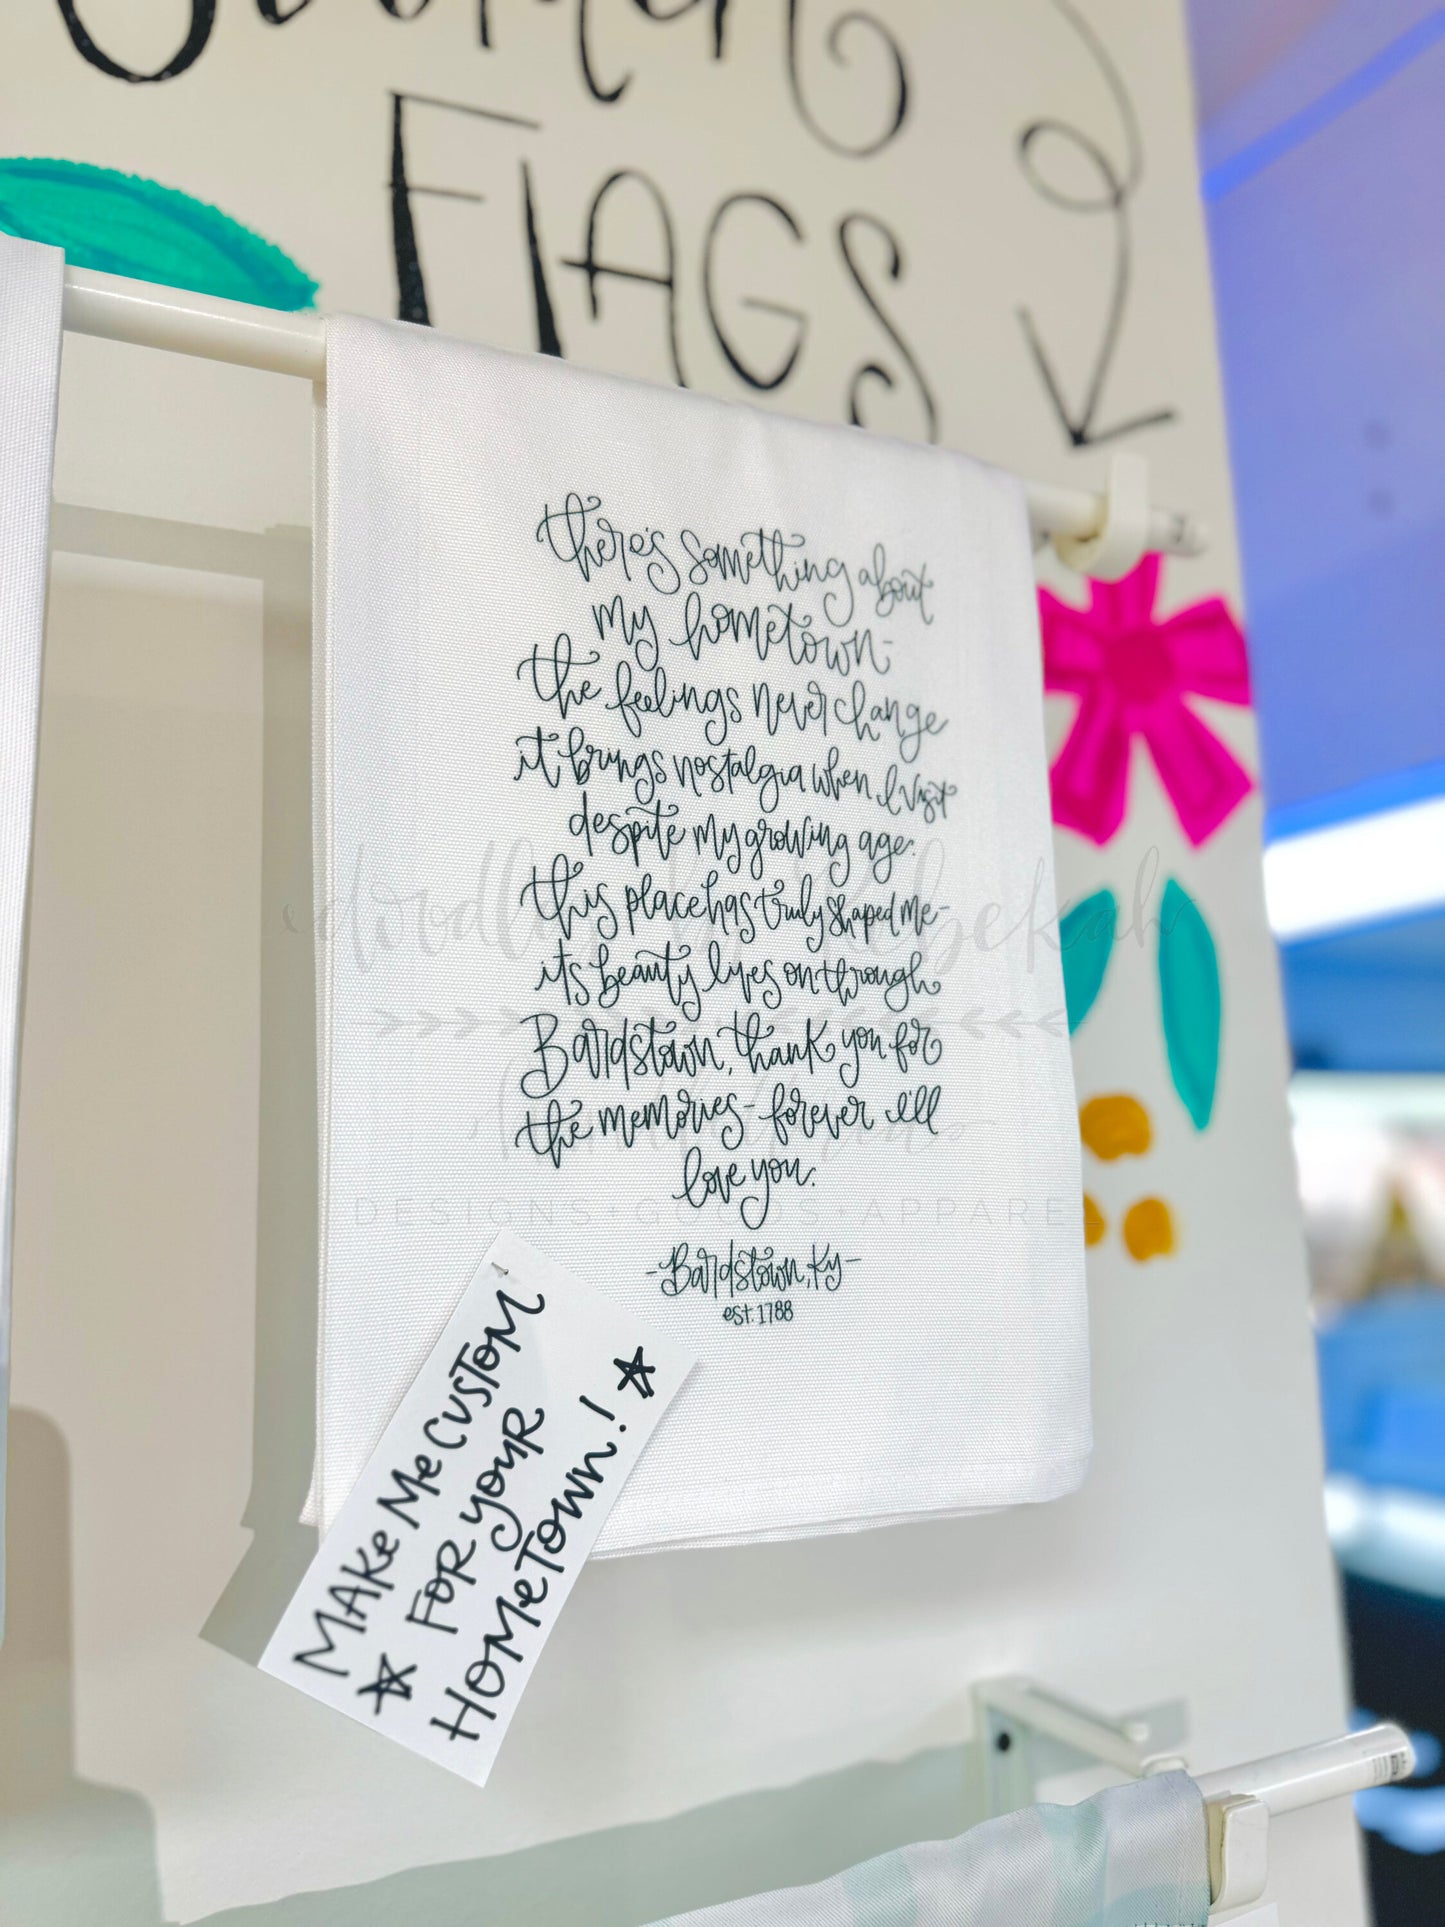 FlAGS
there's something about
my hometown-
the feelings never change
it brings nostalgia when I visit
despite my growing age.
this place has truly shaped me-
it's beauty lives on through
Bardstown, thank you for
the memories- forever I'll
love you.
-Bardstown, Ky-
est. 1788
Make Me Custom
For your
Hometown!
doodles by Rebekah
DESIGNS + GOODS + APPAREL